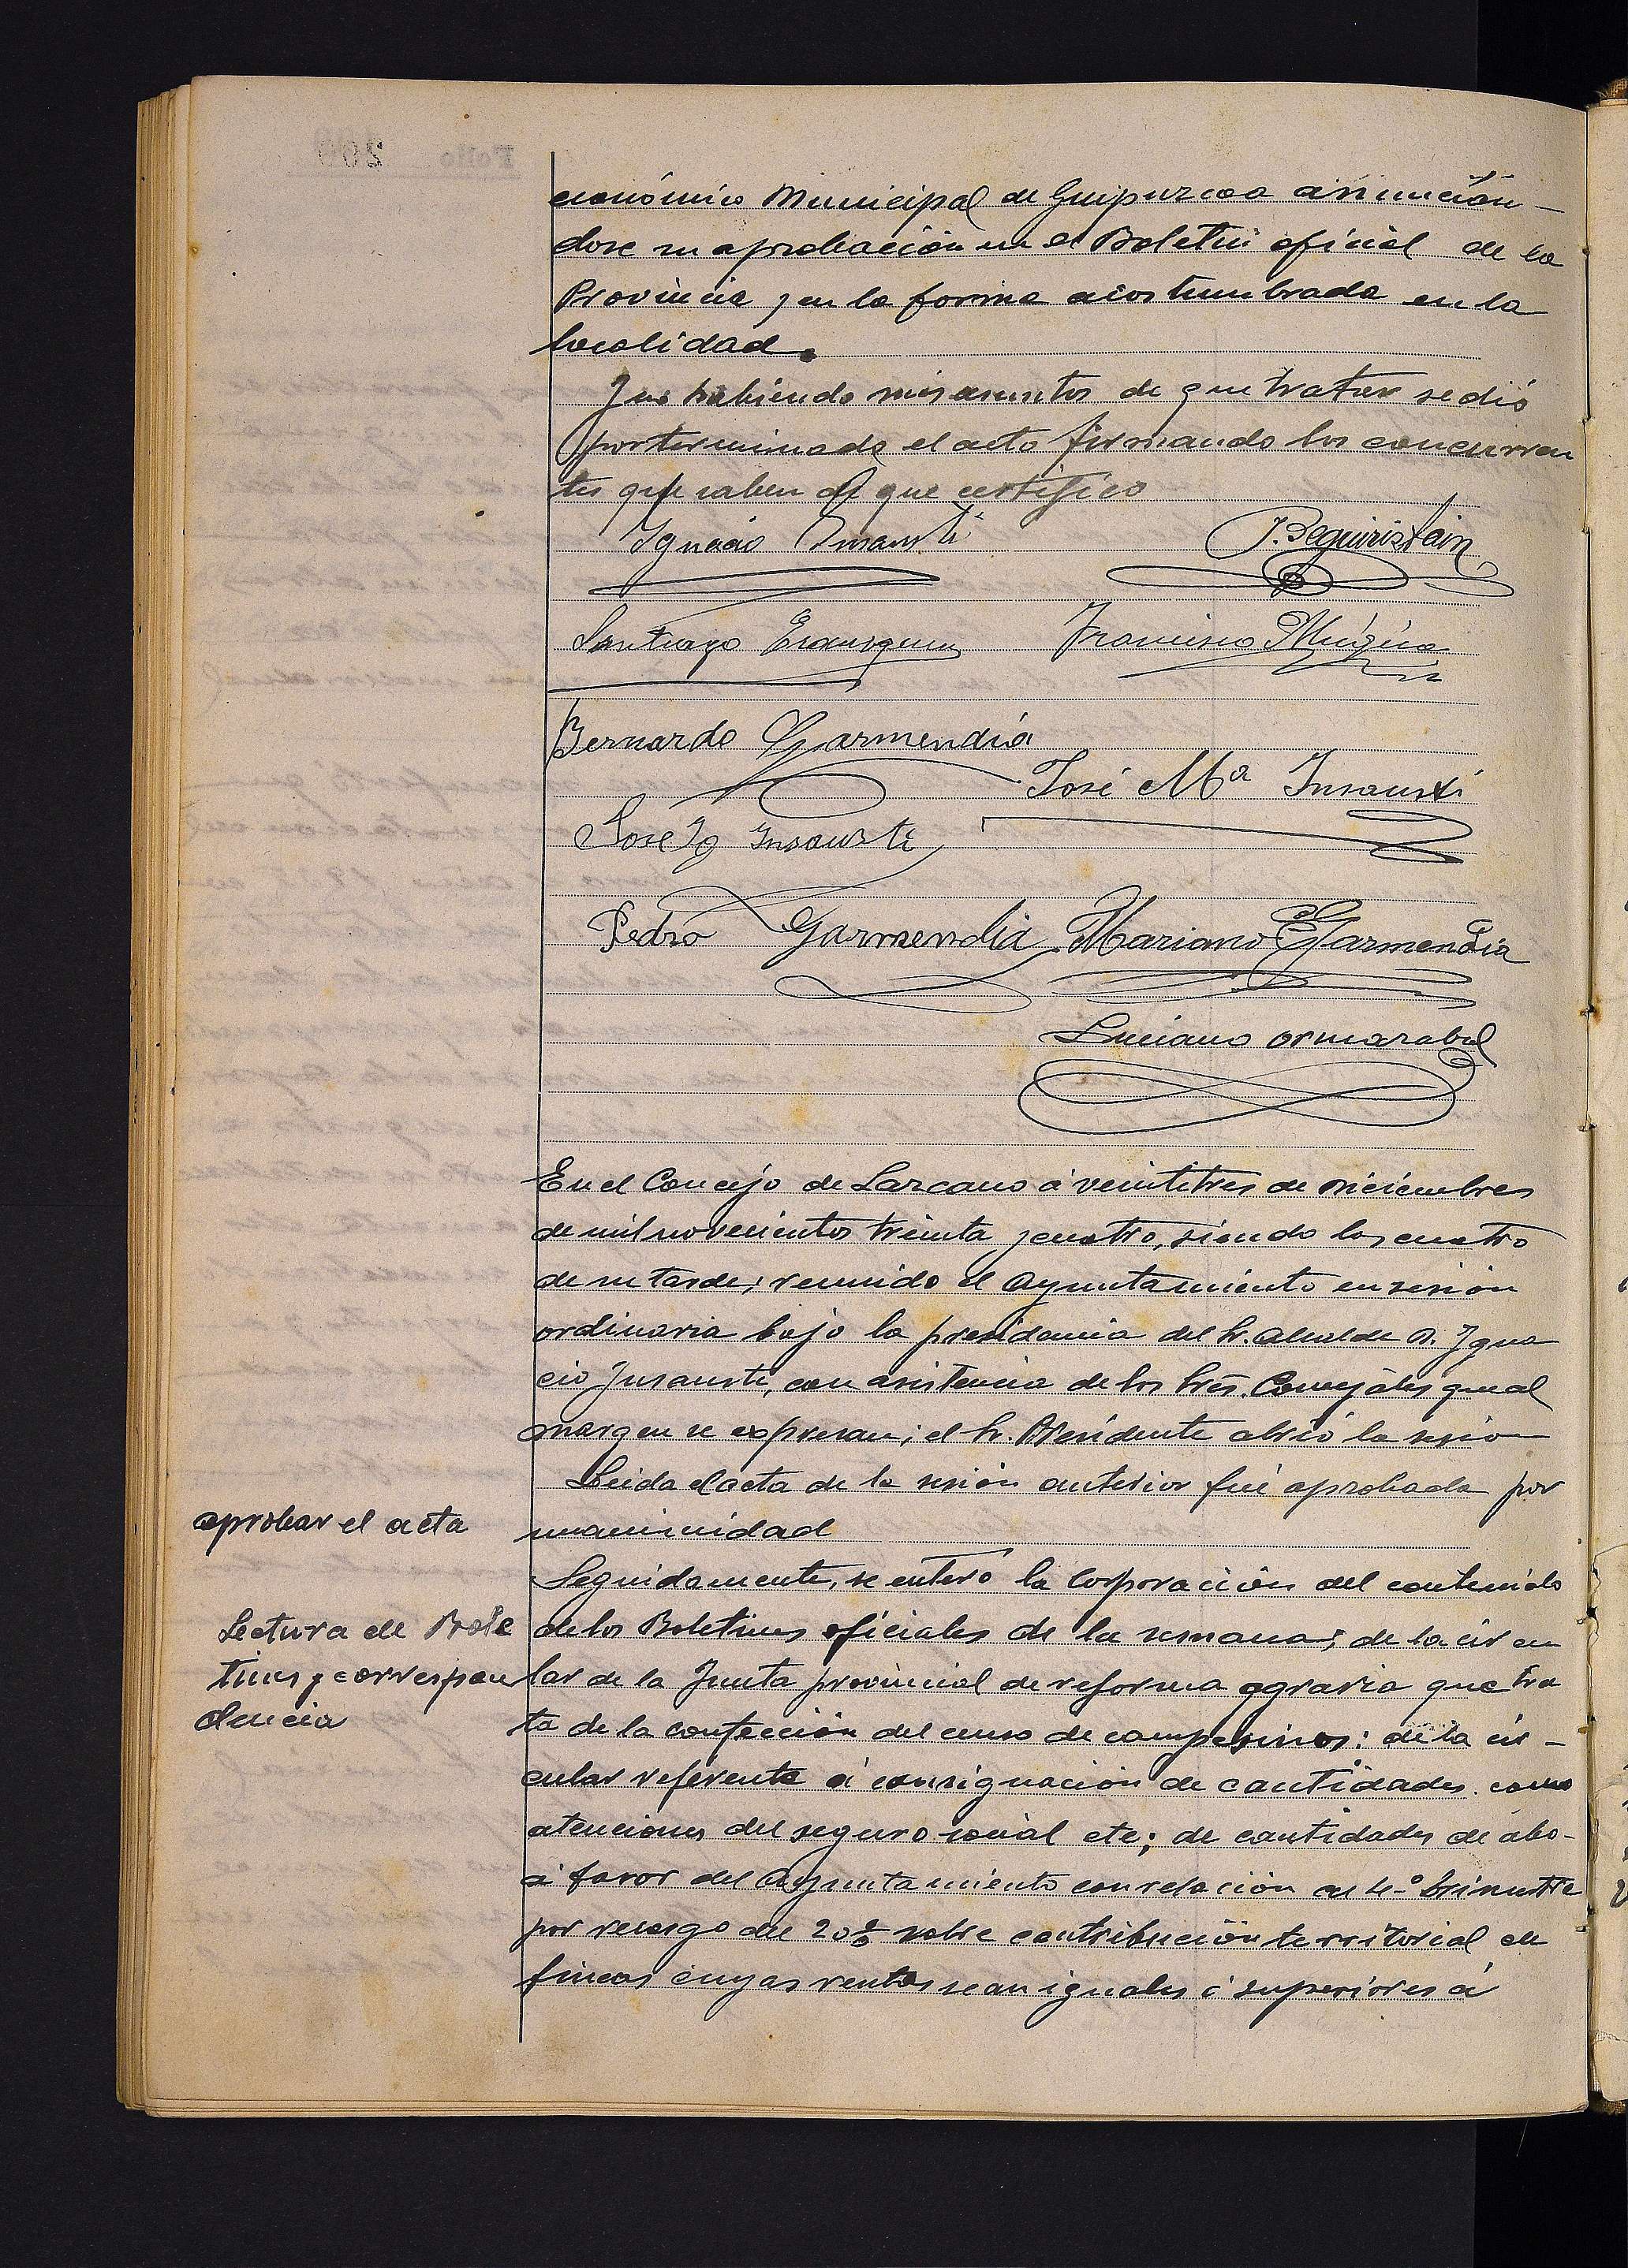 económico Municipal de Guipuzcoa anuncián-
dose su aprobación en el Boletin oficial de la
Provincia y en la forma acostumbrada en la
localidad.
Y no habiendo mas asuntos de que tratar se dió
por terminado el acto firmando los concurren
tes que saben de que certifico
Ignacio Insausti
J. Beguiristain
Santiago
Francisco Múgica
Bernardo Garmendia
José Mª Insausti
José Ig Insausti
Pedro Garmendia
Mariano Garmendia
Luciano Ormazabal
En el Concejo de Lazcano á veintitres de Diciembre
de mil novecientos treinta y cuatro, siendo las cuatro
de su tarde; reunido el Ayuntamiento en sesión
ordinaria bajo la presidencia del Sr. Alcalde D. Igna
cio Insausti, con asistencia de los Sres. Concejales que al
margen se expresan; el Sr. Presidente abrió la sesion
Leida el acta de la sesión anterior fué aprobada por
unanimidad
aprobar el acta
Seguidamente, se enteró la Corporación del contenido
de los Boletines oficiales de la semana; de la circu
lar de la Junta provincial de reforma agraria que tra
ta de la confección del censo de campesinos: de la cir-
cular referente á consignación de cantidades como
atenciones del seguro social etc; de cantidades de abo-
á favor del Ayuntamiento con relación al 4º trimestre
por recargo del 20% sobre contribución territorial de
fincas cuyas rentas sean iguales ó superiores á
Lectura de Bole
tines y correspon
dencia
Folio